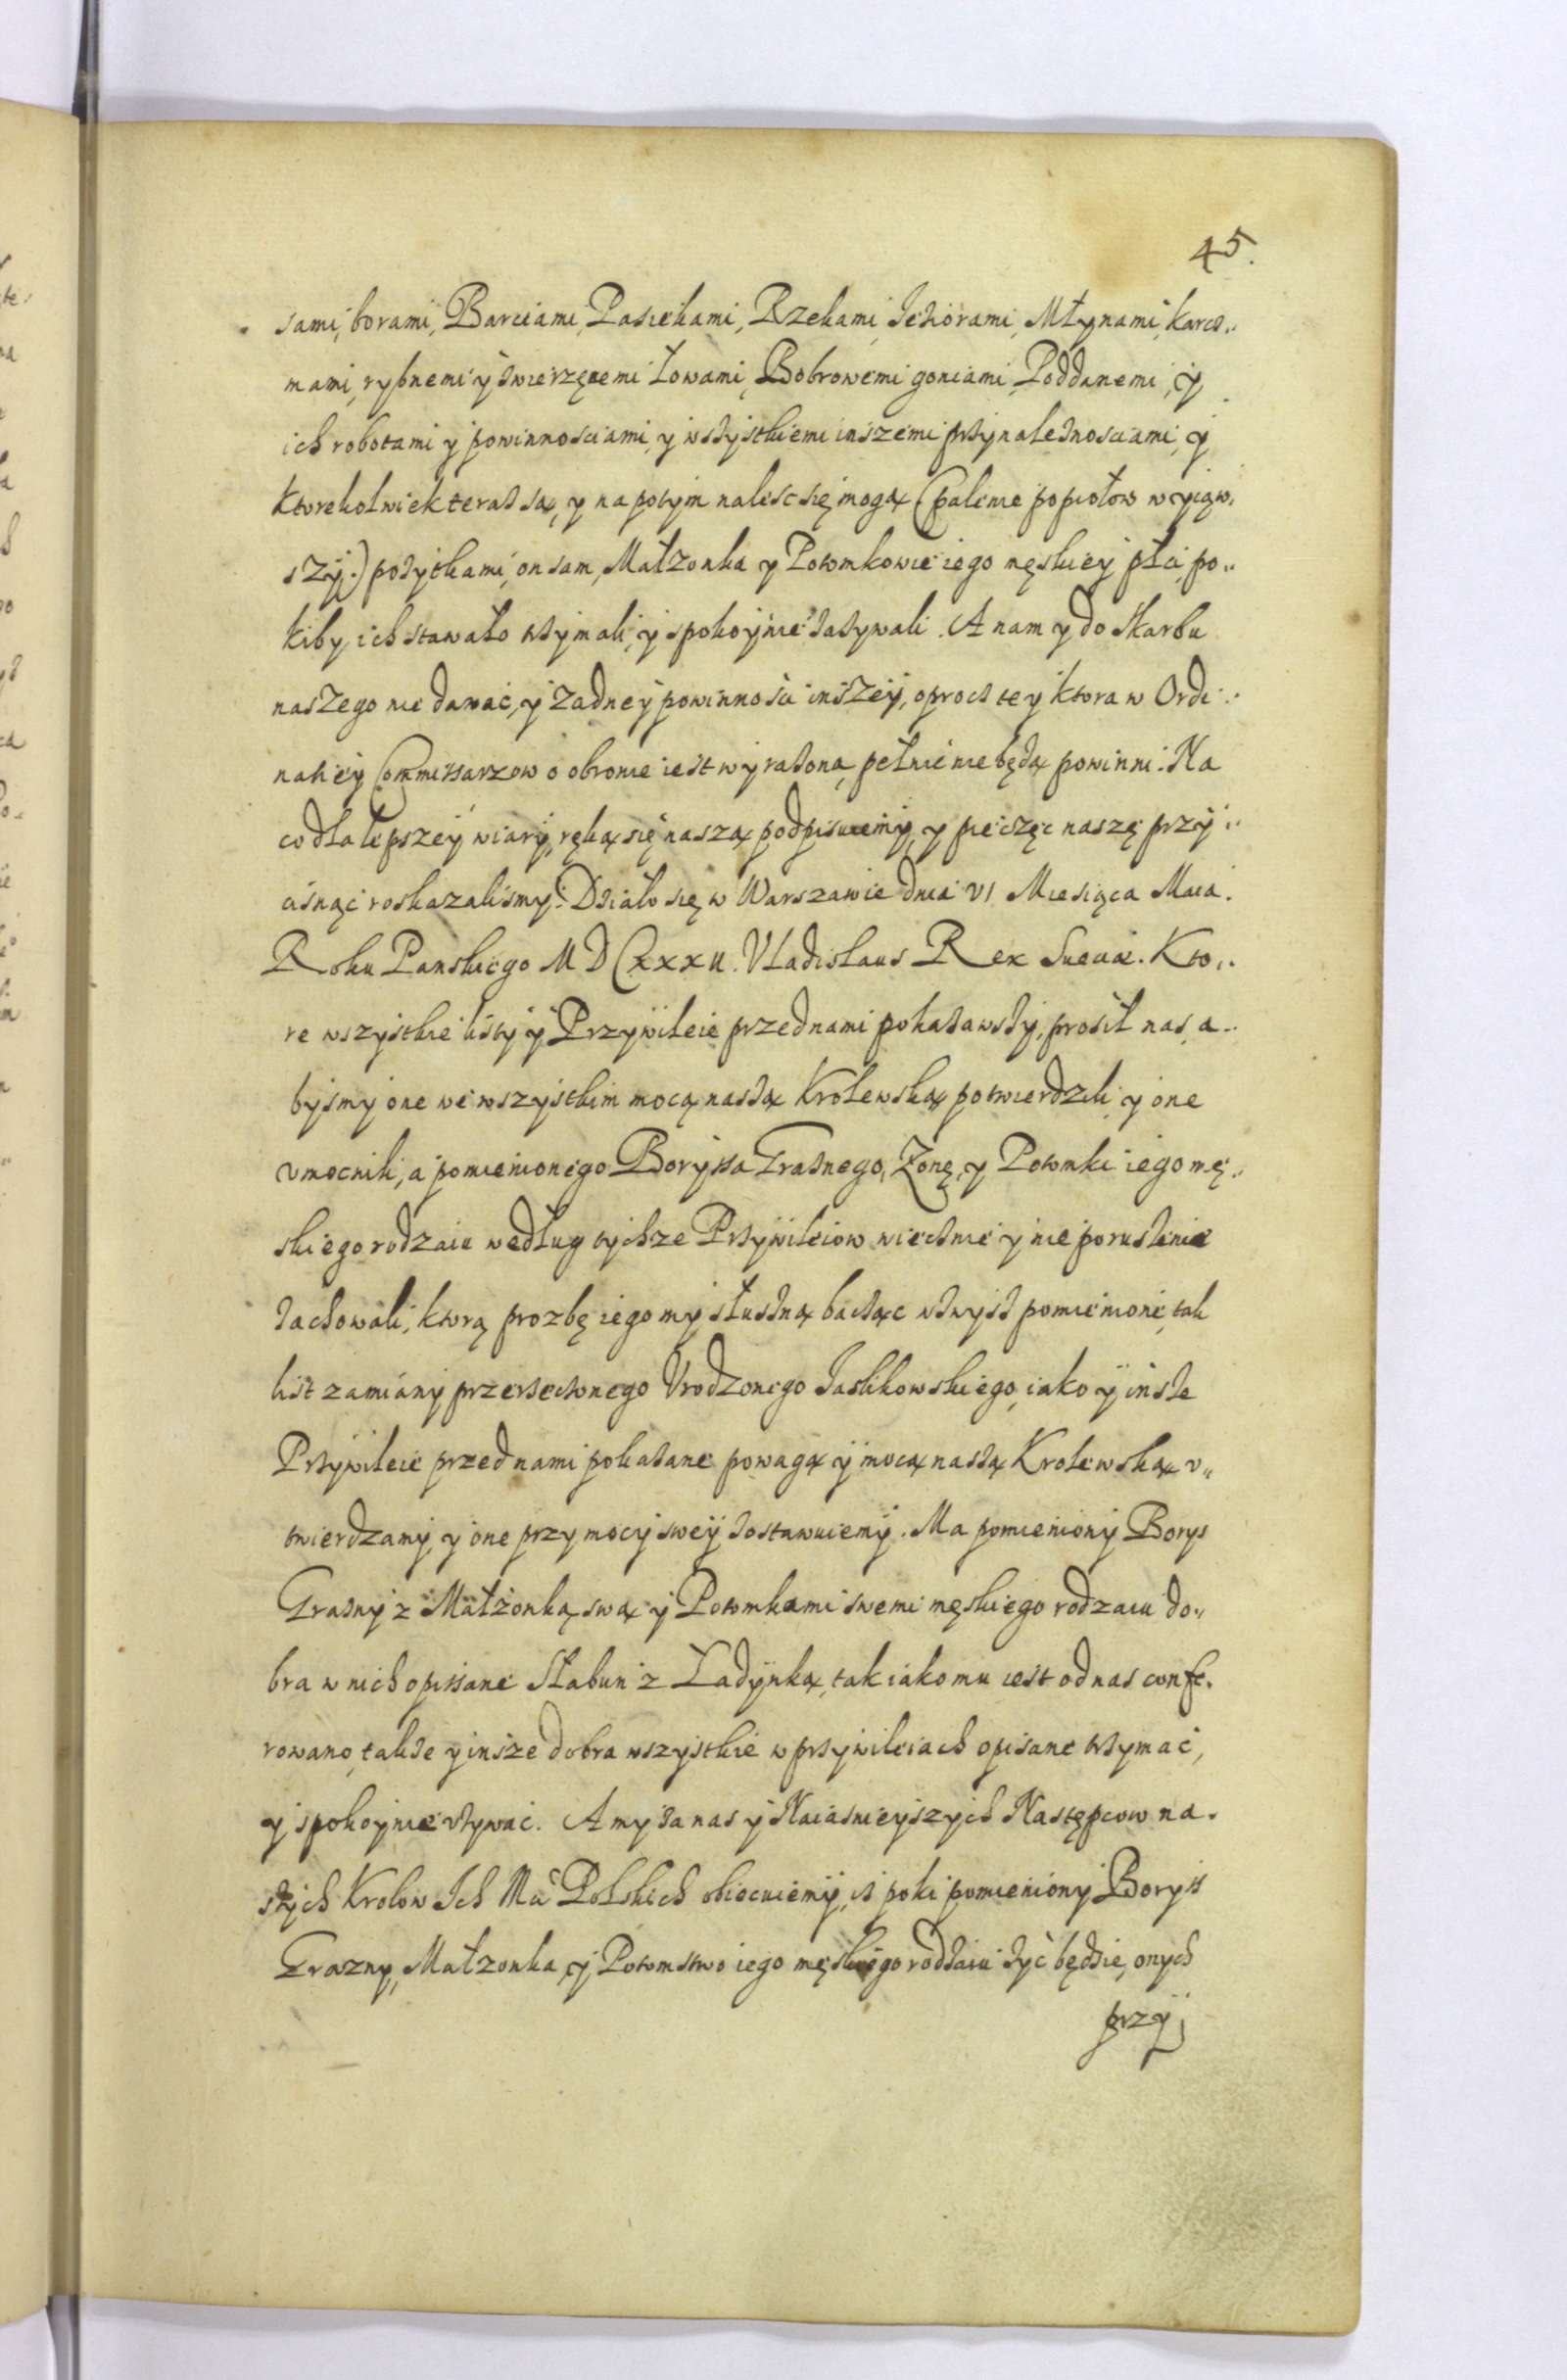 45.
sami, borami, Barciami, Pasiekami, Rzekami, Ieziorami, Młynami, karcz„
mami, rybnemi y zwierzęcemi łowami, Bobrowemi goniami, Poddanemi, y
ich robotami y powinnosciami, y wszystkiemi inszemi przynaleznosciami, y
ktorekolwiek teraz są, y na potym nalesc się mogą (palenie popiołow wyiąw„
szy.) pozytkami, on sam, Małzonka y Potomkowie iego męskiey płci, po„
kiby ich stawało trzymali, y spokoynie zazywali. A nam y do Skarbu
naszego nie dawać, y zadney powinnosci inszey, oprocz tey ktora w Ordi„
natiey Commissarzow o obronie iest wyrazona, pełnić nie będą powinni. Na
co dla lepszey wiary, ręką się naszą podpisuiemy, y pieczęc naszę przy„
cisnąć roskazalismy. Działo się w Warszawie dnia VI Miesiąca Maia.
Roku Panskiego MDCXXXII. Vladislaus Rex Sueciæ. Kto„
re wszystkie listy y Przywileie przed nami pokazawszy, prosił nas, a„
bysmy one we wszystkim mocą naszą Krolewską potwierdzili, y one
vmocnili, a pomienionego Boryssa Graznego, Zonę, y Potomki iego mę„
skiego rodzaiu według tychze Przywileiow wiecznie y nie poruszenie
zachowali, ktorą prozbę iego my słuszną bacząc zwysz pomienione, tak
list zamiany przerzeczonego Vrodzonego Jaslikowskiego, iako y insze
Przywileie przed nami pokazane powagą y mocą naszą Krolewską v„
twierdzamy, y one przy mocy swey zostawuiemy. Ma pomieniony Borys
Grazny z Małżonką swą y Potomkami swemi męskiego rodzaiu do„
bra w nich opissane Słabun z Ładynką, tak iako mu iest od nas confe„
rowano, takze y insze dobra wszystkie w przywileiach opisane trzymać,
y spokoynie vzywać. A my za nas y Naiasnieyszych Następcow na„
szych Krolow Ich Mci Polskich obiecuiemy, iz poki pomieniony Boryss
Grazny, Małzonka, y Potomstwo iego męskiego rodzaiu zyć będzie, onych
przy